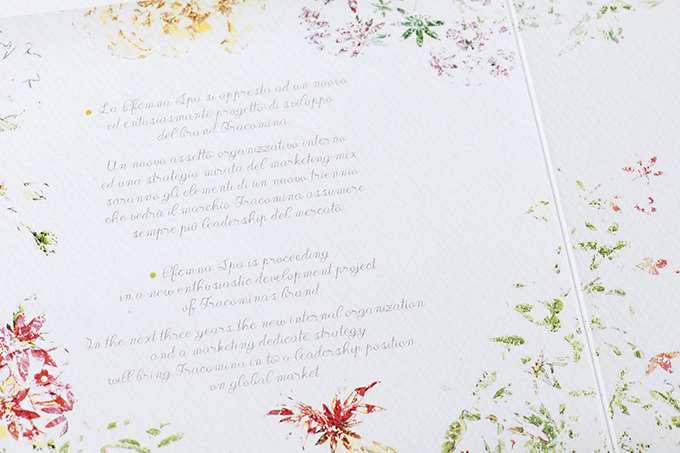 La Ofcmna Spa si appresta ad un nuovo
ed entusiasmante progetto di sviluppo
del brand Fracomina.
Un nuovo assetto organizzativo interno
ed una strategia mirata del marketing mix
saranno gli elementi di un nuovo triennio
che vedrà il marchio Fracomina assumere
sempre più leadership del mercato
Ofcmna Spa is proceeding
in a new enthusiastic development project
of Fracomina's brand
In the next three years the new internal organization
and a marketing dedicate strategy
will bring Fracomina in to a leadership position
on global market